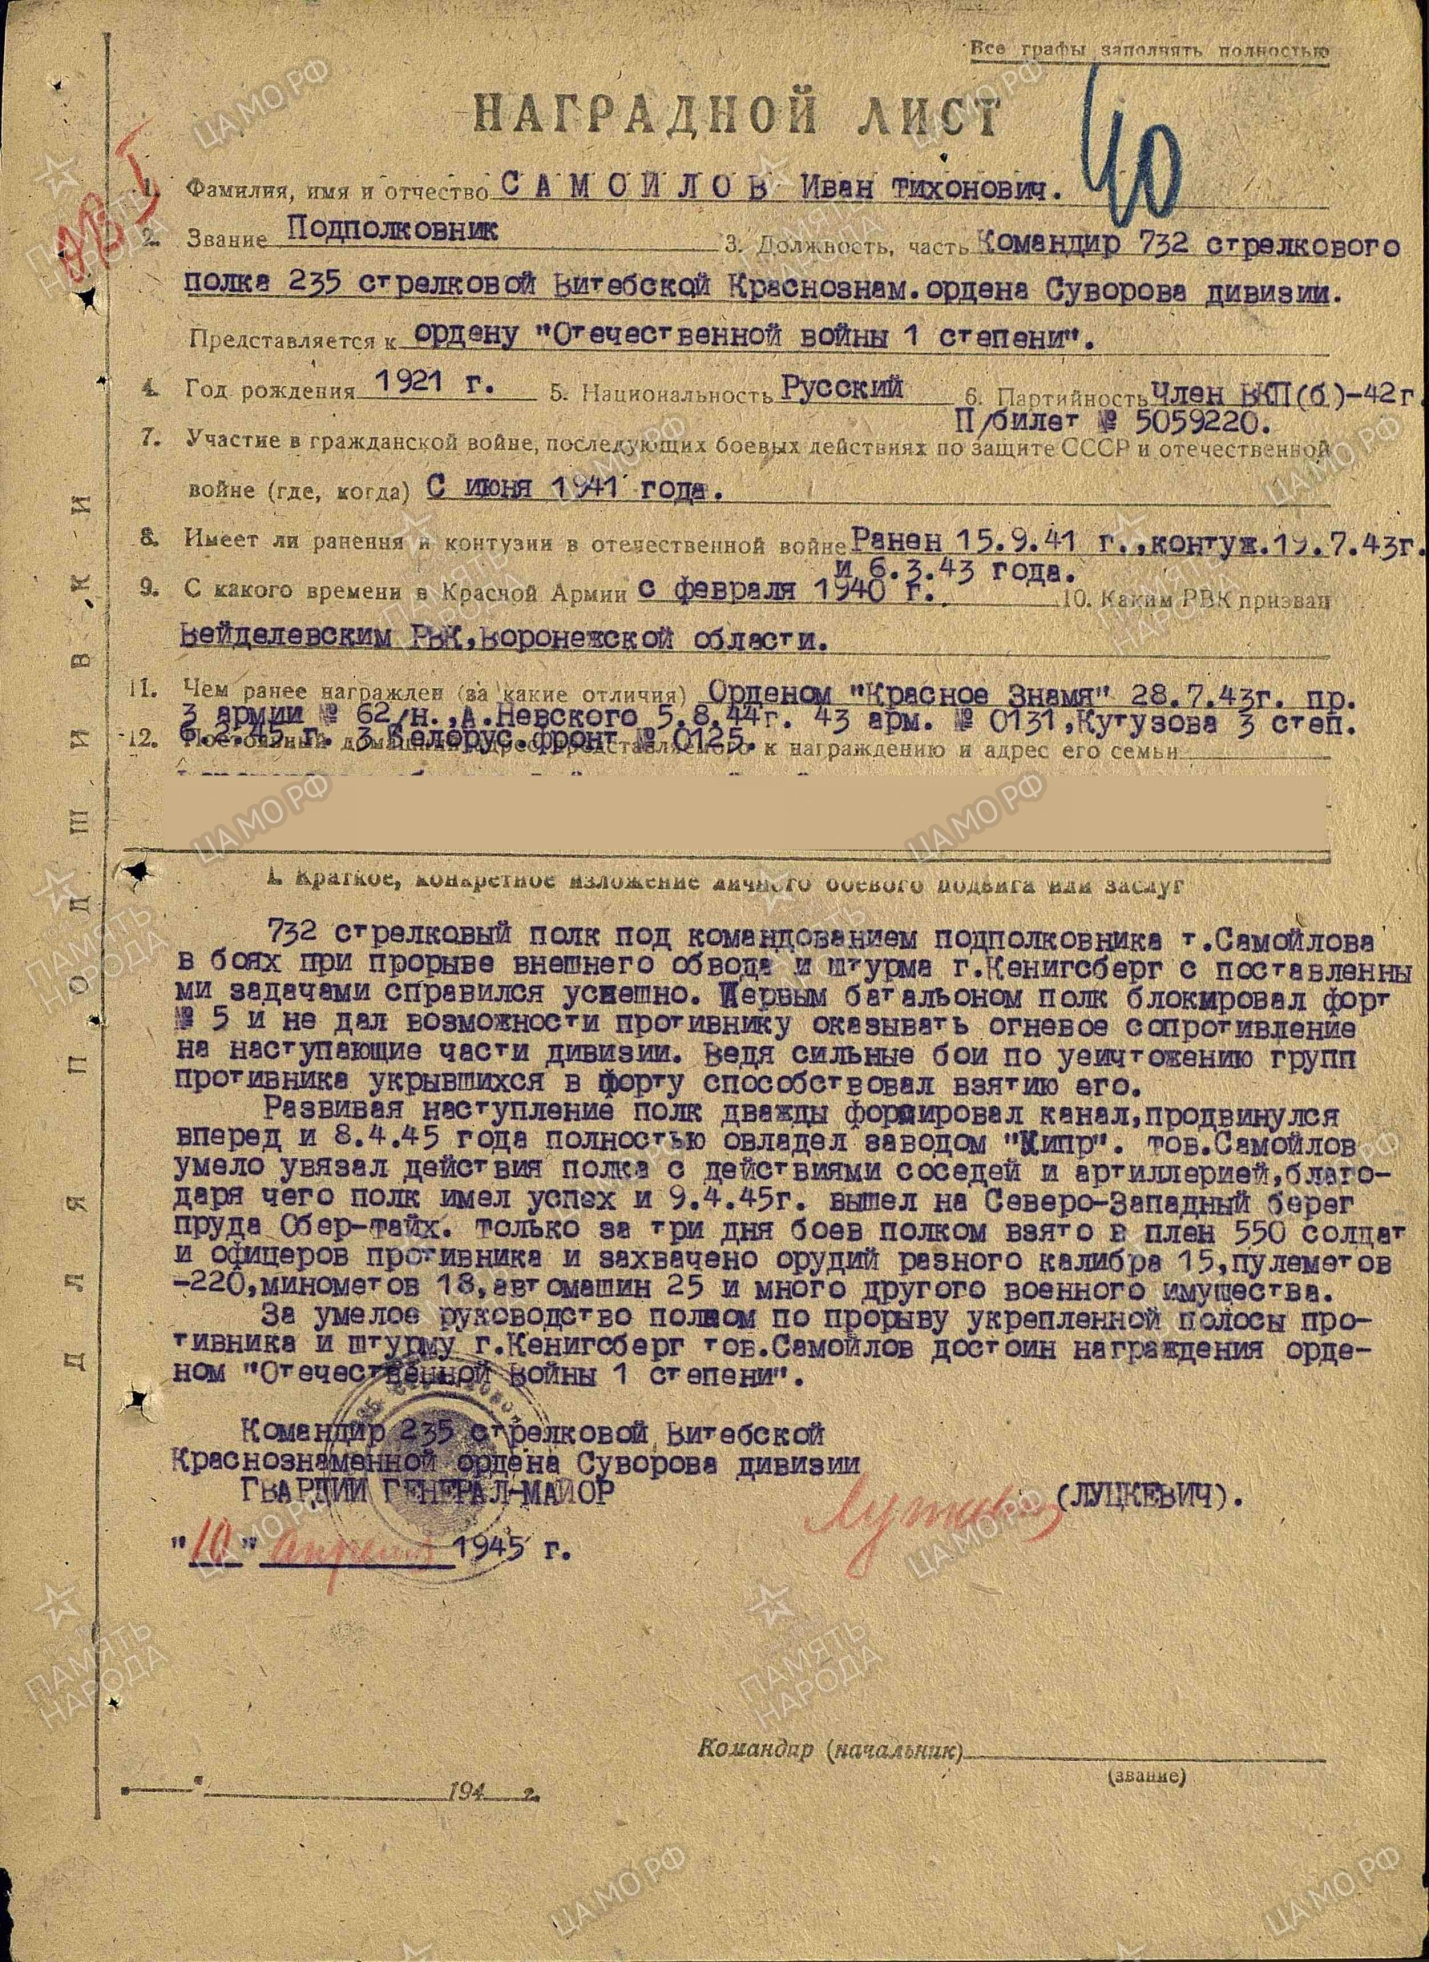 Все графы заполнять полностью
НАГРАДНОЙ ЛИСТ
40
ОВ I
1. Фамилия, имя и отчество САМОЙЛОВ Иван Тихонович.
2. Звание Подполковник 3. Должность, часть Командир 732 стрелкового
полка 235 стрелковой Витебской Краснознам.ордена Суворова дивизии.
Представляется к ордену "Отечественной войны 1 степени".
4. Год рождения 1921 г. 5. Национальность Русский 6. Партийность Член ВКП(б)-42г.
П/билет № 5059220.
7. Участие в гражданской войне, последующих боевых действиях по защите СССР и отечественной
войне (где, когда) С июня 1941 года.
8. Имеет ли ранения и контузии в отечественной войне Ранен 15.9.41 г.,контуж.19.7.43г.
и 6.3.43 года.
9. С какого времени в Красной Армии с февраля 1940 г. 10. Каким РВК призван
Вейделевским РВК,Воронежской области.
11. Чем ранее награжден (за какие отличия) Орденом "Красное Знамя" 28.7.43г. пр.
3 армии № 62/н.,А.Невского 5.8.44г. 43 арм. № 0131,Кутузова 3 степ.
6.2.45 г. 3 Белорус.фронт № 0125.
12. Постоянный домашний адрес представляемого к награждению и адрес его семьи
I. Краткое, конкретное изложение личного боевого подвига или заслуг
732 стрелковый полк под командованием подполковника т.Самойлова
в боях при прорыве внешнего обвода и штурма г.Кенигсберг с поставленны
ми задачами справился успешно. Первым батальоном полк блокировал форт
№ 5 и не дал возможности противнику оказывать огневое сопротивление
на наступающие части дивизии. Ведя сильные бои по уеичтожению групп
противника укрывшихся в форту способствовал взятию его.
Развивая наступление полк дважды формировал канал,продвинулся
вперед и 8.4.45 года полностью овладел заводом "Кипр". Тов.Самойлов
умело увязал действия полка с действиями соседей и артиллерией,благо-
даря чего полк имел успех и 9.4.45г. вышел на Северо-Западный берег
пруда Обер-Тайх. Только за три дня боев полком взято в плен 550 солдат
и офицеров противника и захвачено орудий разного калибра 15,пулеметов
-220,минометов 18,автомашин 25 и много другого военного имущества.
За умелое руководство полком по прорыву укрепленной полосы про-
тивника и штурму г.Кенигсберг тов.Самойлов достоин награждения орде-
ном "Отечественной войны 1 степени".
Командир 235 стрелковой Витебской
Краснознаменной ордена Суворова дивизии
ГВАРДИИ ГЕНЕРАЛ-МАЙОР (ЛУЦКЕВИЧ).
"10" апреля 1945 г.
Командир (начальник)
(звание)
194 г.
ДЛЯ ПОДШИВКИ
ПАМЯТЬ НАРОДА
ЦАМО РФ